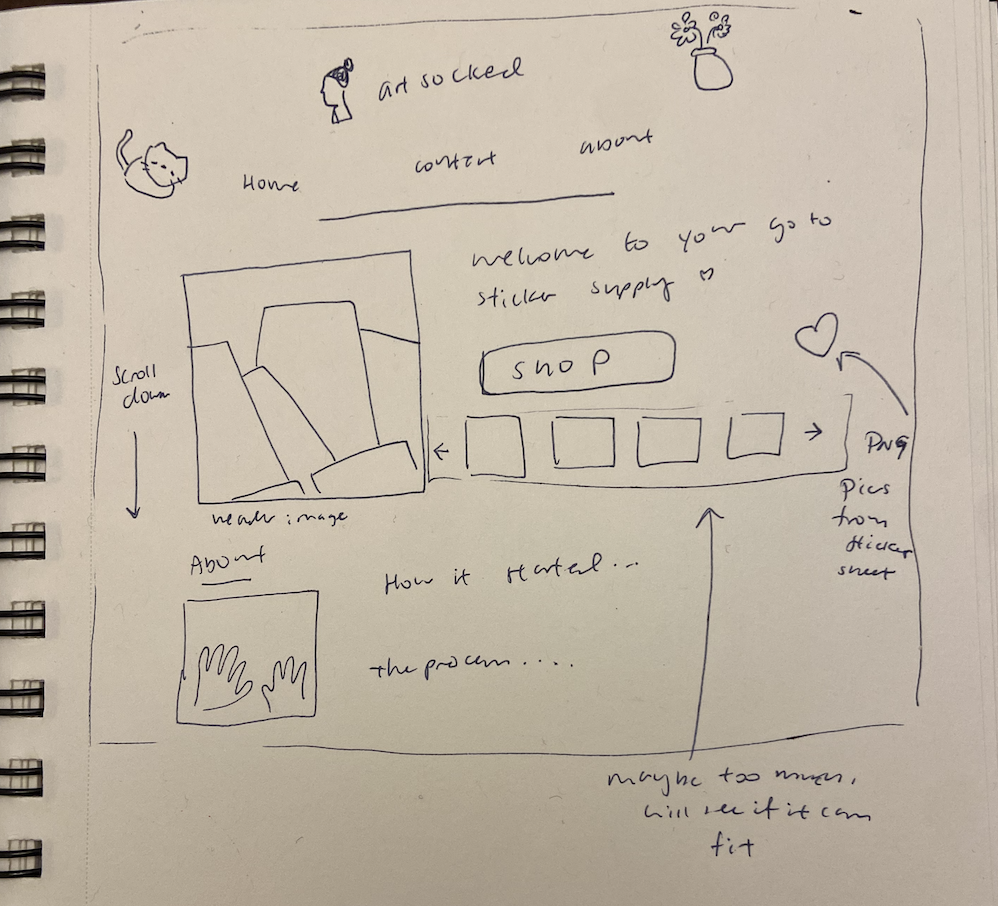 art socked
Home contact about
welcome to your go to
sticker supply
shop
Scroll
down
PNG
pics
from
sticker
sheet
header image
About
How it started...
the process....
maybe too much,
will see if it can
fit